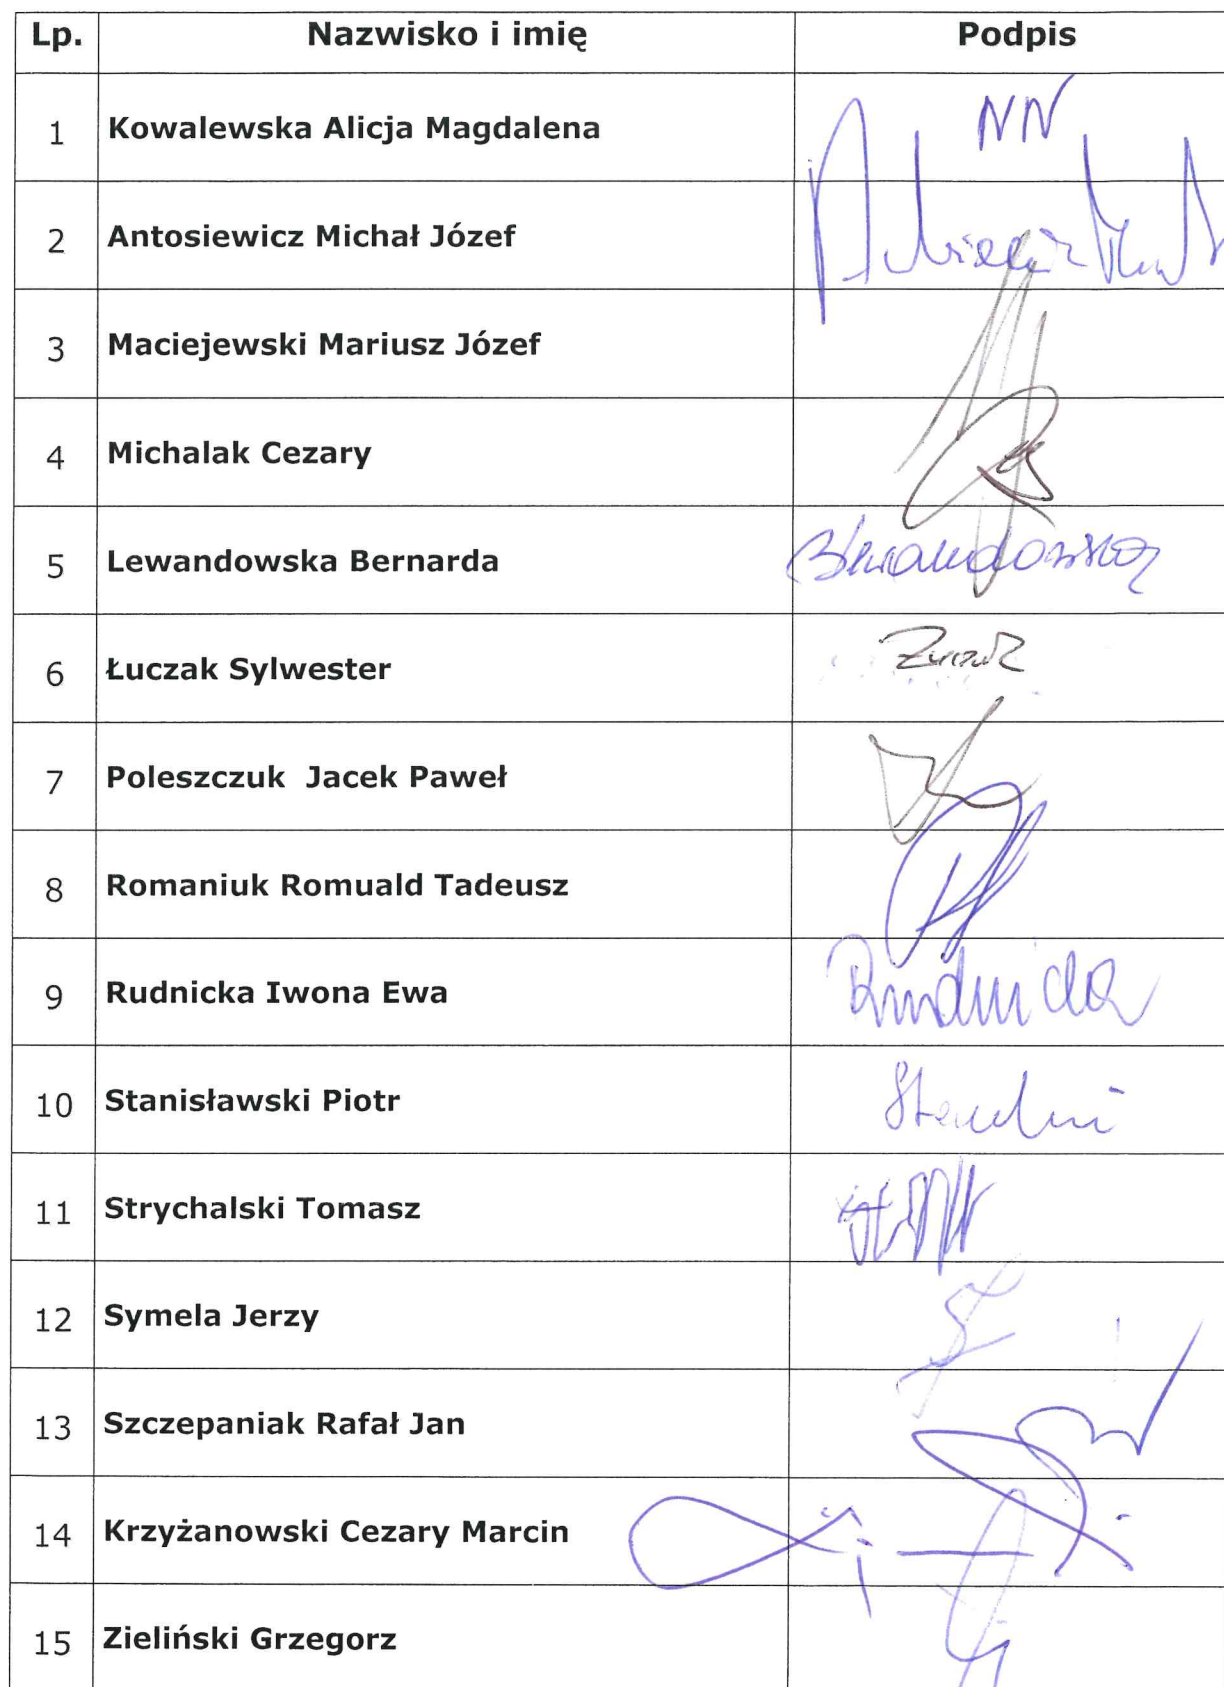 Lp. Nazwisko i imię Podpis
1 Kowalewska Alicja Magdalena NN
2 Antosiewicz Michał Józef
3 Maciejewski Mariusz Józef
4 Michalak Cezary
5 Lewandowska Bernarda BLewandowska
6 Łuczak Sylwester
7 Poleszczuk Jacek Paweł
8 Romaniuk Romuald Tadeusz
9 Rudnicka Iwona Ewa Rudnicka
10 Stanisławski Piotr
11 Strychalski Tomasz
12 Symela Jerzy
13 Szczepaniak Rafał Jan
14 Krzyżanowski Cezary Marcin
15 Zieliński Grzegorz